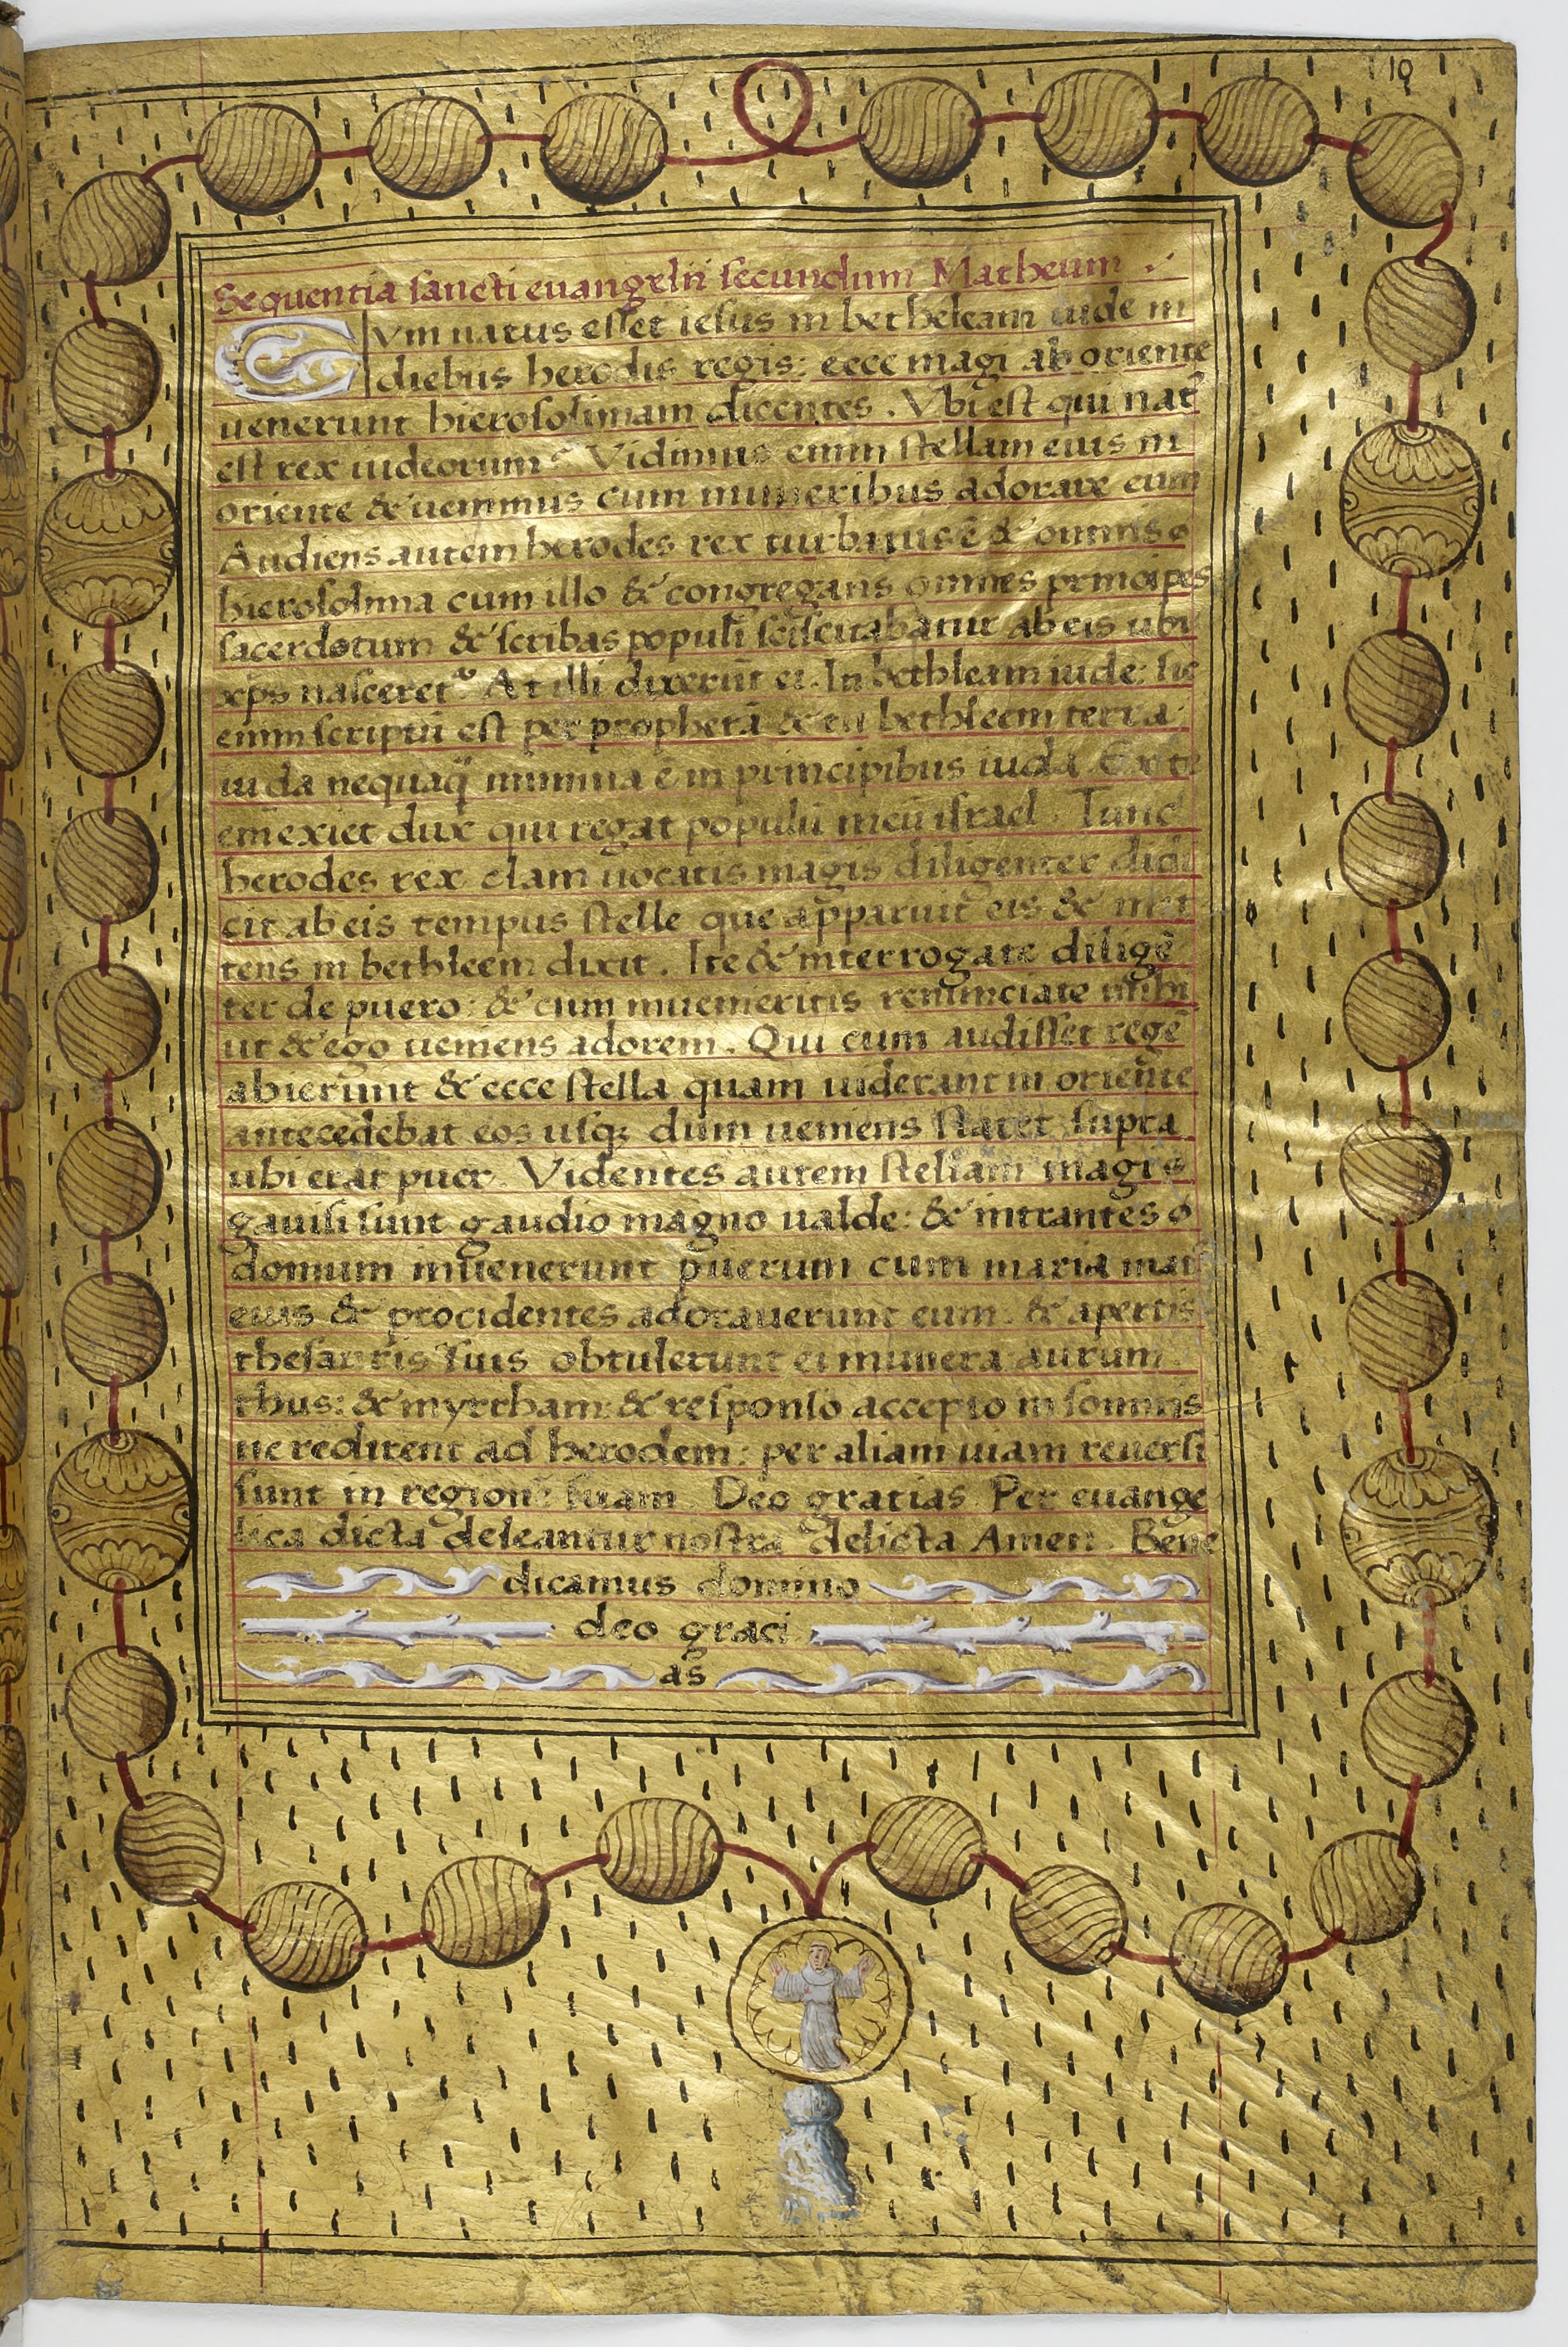 10
Sequentia sancti euangelii secundum Matheum
Cvm natus esset iesus in betheleam iude in
diebus herodis regis: ecce magi ab oriente
uenerunt hierosolimam dicentes. Vbi est qui nat᷒
est rex iudeorum? Vidimus enim stellam eius in
oriente & uenimus cum muneribus adorare eum
Audiens autem herodes rex turbatus ē & omnis o
hierosolima cum illo & congregans omnes principes
sacerdotum & scribas populi sciscitabatur ab eis ubi
xp̄s nasceret᷒ At illi dixerūt ei. In bethleam iude: sic
enim scriptū est per prophetā & tu bethleem terra
iuda nequaq̄ minima ē in principibus iuda. Ex te
em̄ exiet dux qui regat populū meū israel. Tunc
herodes rex clam uocatis magis diligenter didi
cit ab eis tempus stelle que apparuit eis & mit
tens in bethleem dixit. Ite & interrogate diligē
ter de puero: & cum inueneritis renunciate mihi
ut & ego ueniens adorem. Qui cum audisset regē
abierunt & ecce stella quam uiderant in oriente
antecedebat eos usq; dum ueniens staret supra
ubi erat puer. Videntes autem stellam magis
gauisi sunt gaudio magno ualde: & intrantes o
domum inuenerunt puerum cum maria mat
eius & procidentes adorauerunt eum: & apertis
thesauris suis obtulerunt ei munera aurum
thus: & myrrham: & responso accepto in somnis
ne redirent ad herodem: per aliam uiam reuersi
sunt in region̄ suam Deo gratias Per euange
lica dicta deleantur nostra delicta Amen. Bene
dicamus domino
deo graci
as